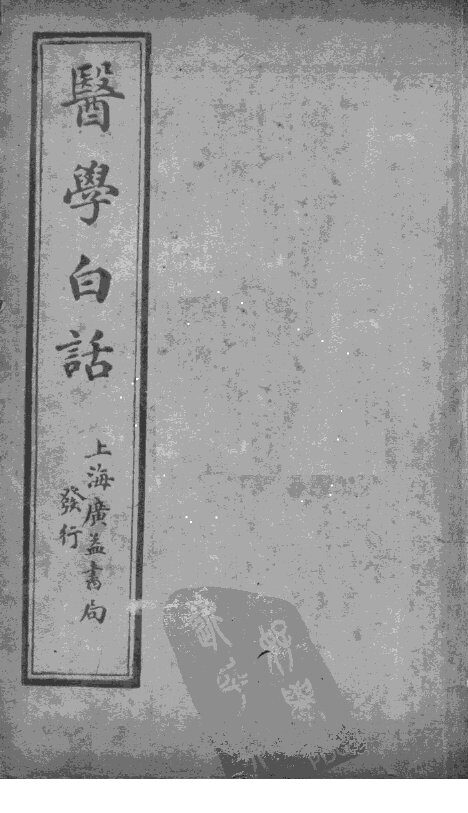 醫學白話
上海廣益書局
發行